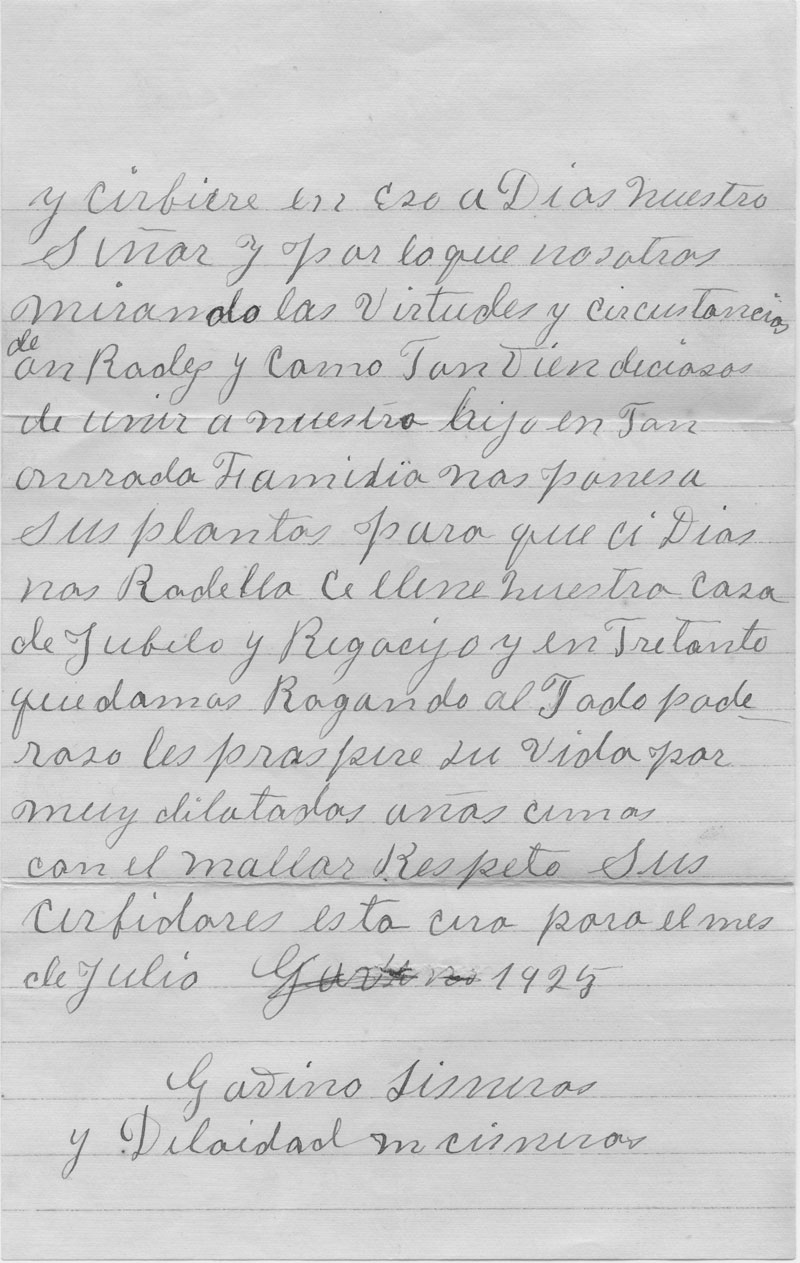 y cirbiere en eso a Dios nuestro
Siñor y por lo que nosotros
mirando las Virtudes y circustancias
de
on Rades y Como Tan Dien deciosos
de unir a nuestro hijo en Tan
onrrada Familia nos ponesa
sus plantas para que ci Dios
nos Rodella Ce llene nuestra casa
de Jubilo y Regocijo y en Tretanto
quedamos Rogando al Todo pode
roso les prospire su Vida por
muy dilatados años cimos
con el mallor Respeto Sus
Cirbidores esto cera para el mes
de Julio 1925
Gavino Sisneros
y Delaidad m cisneros